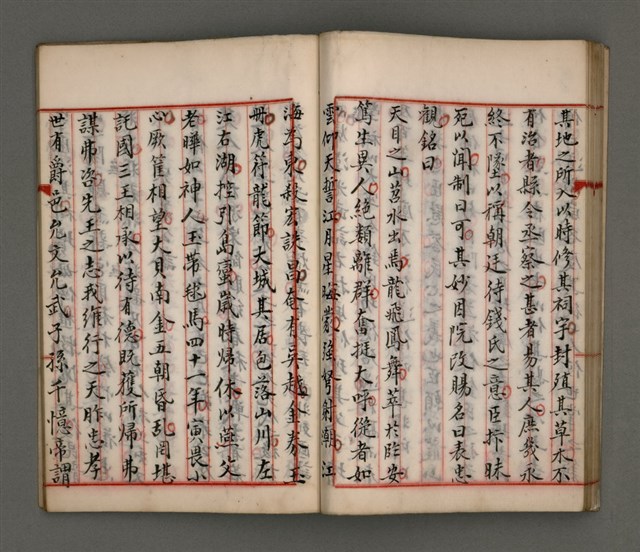 其地之所入以時修其祠宇封殖其草木不
有治者縣令丞察之甚者易其人庶幾永
終不墜以稱朝廷待錢氏之意臣抃昧
死以聞制曰可其妙因院改賜名曰表忠
觀銘曰
天目之山苕水出焉龍飛鳳舞萃於臨安
篤生異人絶類離群奮挺大呼從者如
雲仰天誓江月星晦蒙強弩射潮江
海為東殺宏誅昌奄有吳越金券玉
冊虎符龍節大城其居包落山川左
江右湖控引島蠻歲時歸休以燕父
老曄如神人玉帶毬馬四十一年寅畏小
心厥篚相望大貝南金五朝昏亂罔堪
託國三王相承以待有德既獲所歸弗
謀弗咨先王之志我維行之天胙忠孝
世有爵邑允文允武子孫千億帝謂